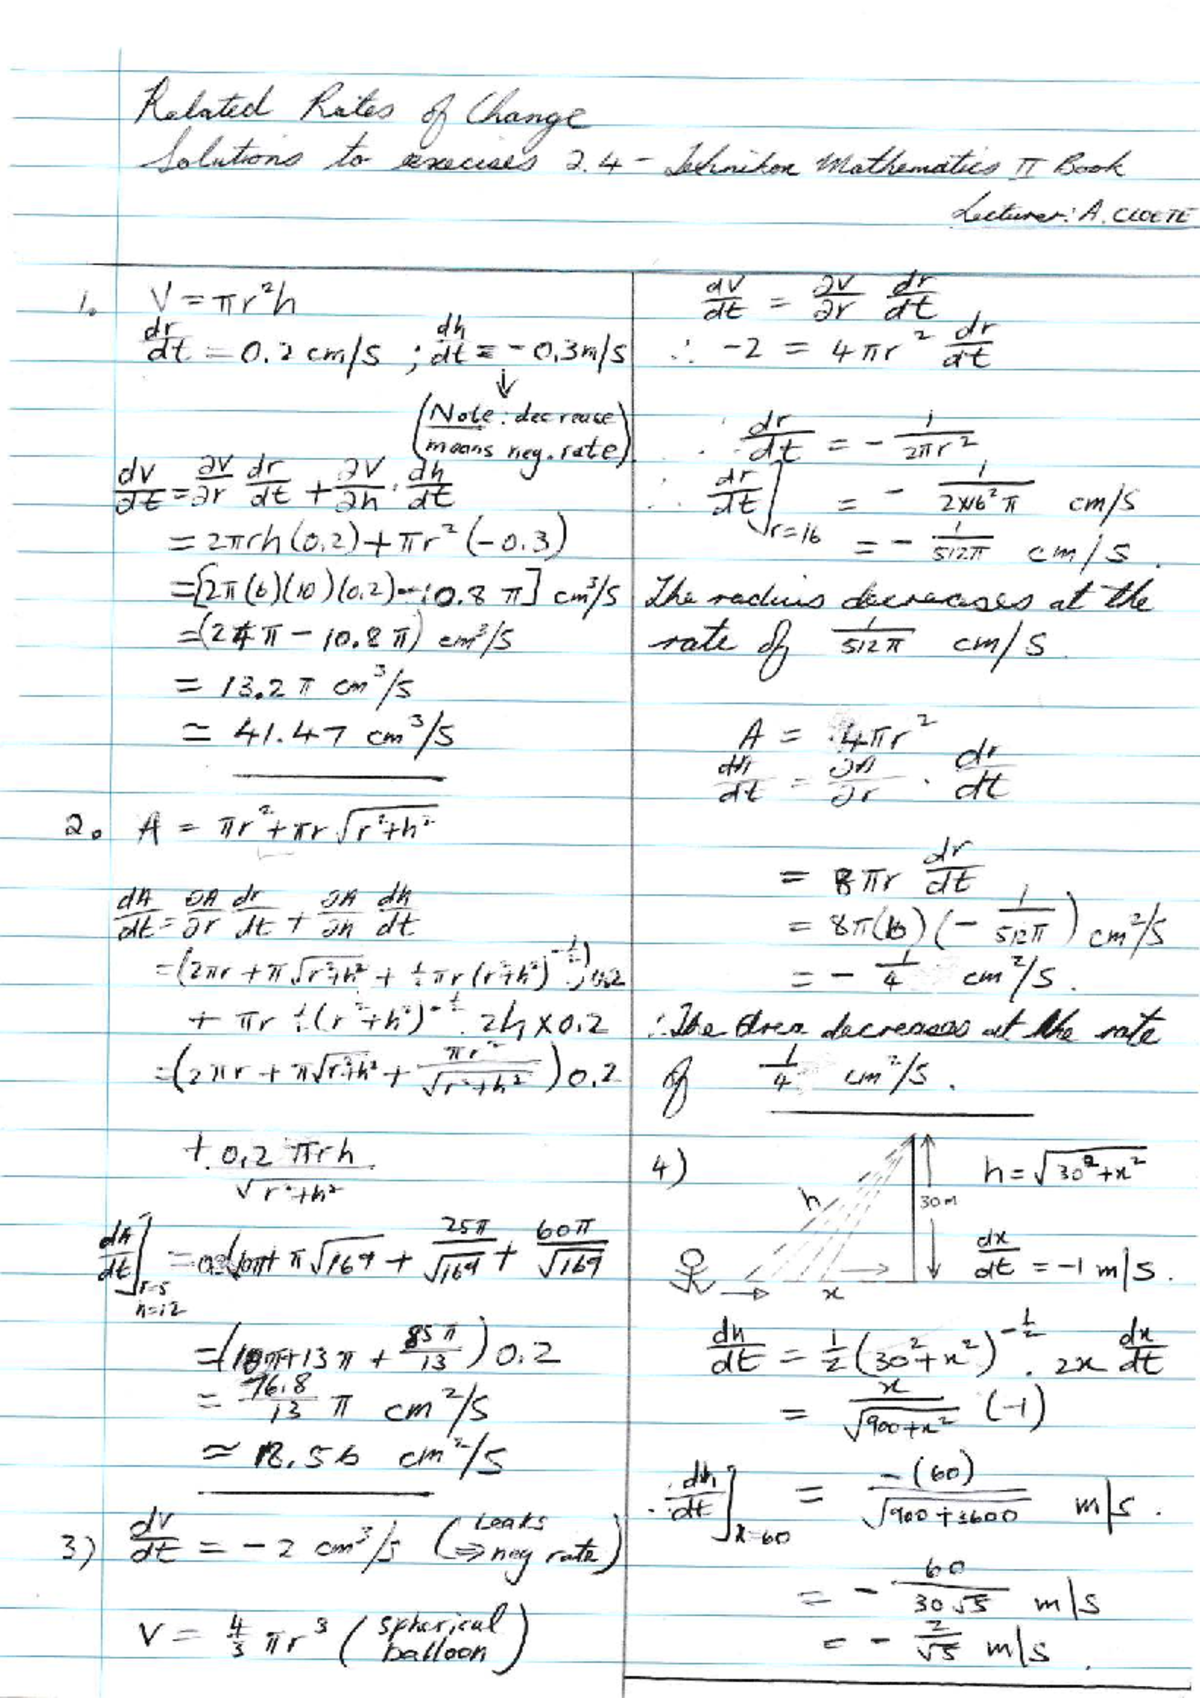 Related Rates of Change
Solutions to exercises 2.4 - Technikon Mathematics II Book
Lecturer: A. CLOETE
1. V = πr²h
dr/dt = 0.2 cm/s ; dh/dt = -0,3m/s
↓
(Note: decrease
means neg. rate)
dv/dt = ∂V/∂r dr/dt + ∂V/∂h · dh/dt
= 2πrh(0.2) + πr²(-0.3)
= [2π(6)(10)(0.2) - 10.8 π] cm³/s
= (24π - 10.8π) cm³/s
= 13.2π cm³/s
≃ 41.47 cm³/s
2. A = πr² + πr√(r²+h²)
dA/dt = ∂A/∂r dr/dt + ∂A/∂h dh/dt
= (2πr + π√(r²+h²) + ½πr(r²+h²)^(-½)) 0.2
+ πr ½(r²+h²)^(-½) · 2h × 0.2
= (2πr + π√(r²+h²) + πr²/√(r²+h²)) 0.2
+ 0,2 πrh/√(r²+h²)
dA/dt]r=5 h=12 = 10π + π√169 + 25π/√169 + 60π/√169
= (10π + 13π + 85π/13) 0.2
= 76.8/13 π cm²/s
≃ 18.56 cm²/s
3) dv/dt = -2 cm³/s (Leaks ⇒ neg rate)
V = 4/3 πr³ (spherical balloon)
dV/dt = ∂V/∂r dr/dt
∴ -2 = 4πr² dr/dt
∴ dr/dt = - 1/2πr²
∴ dr/dt]r=16 = - 1/2×16²π cm/s
= - 1/512π cm/s.
The radius decreases at the
rate of 1/512π cm/s.
A = 4πr²
dA/dt = ∂A/∂r · dr/dt
= 8πr dr/dt
= 8π(16)(- 1/512π) cm²/s
= - 1/4 cm²/s.
∴ The Area decreases at the rate
of 1/4 cm²/s.
4) h = √(30²+x²)
h
30m
dx/dt = -1 m/s.
x
dh/dt = ½(30²+x²)^(-½) · 2x dx/dt
= x/√(900+x²) (-1)
∴ dh/dt]x=60 = -(60)/√(900+3600) m/s.
= - 60/30√5 m/s
= - 2/√5 m/s.